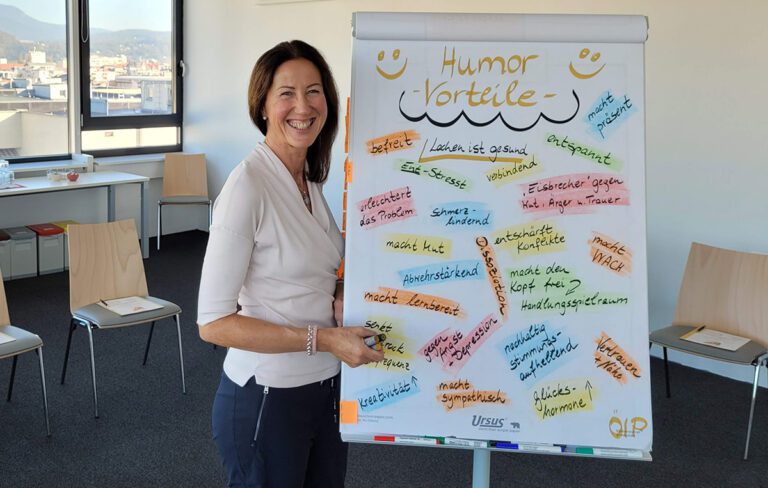 Humor
- Vorteile -
macht
präsent
befreit
Lachen ist gesund
entspannt
Ent-Stress
verbindend
erleichtert
das Problem
Schmerz-
lindernd
Eisbrecher gegen
Wut, Ärger u. Trauer
macht Mut
entschärft
Konflikte
macht
WACH
Abwehrstärkend
Dissoziation
macht den
Kopf frei
Handlungsspielraum
macht lernbereit
senkt
frequenz
gegen Angst
-Depression
nachhaltig
Stimmungs-
aufhellend
Vertrauen
Kreativität ↑
macht
sympathisch
Glücks-
hormone ↑
Ursus
ÖIP